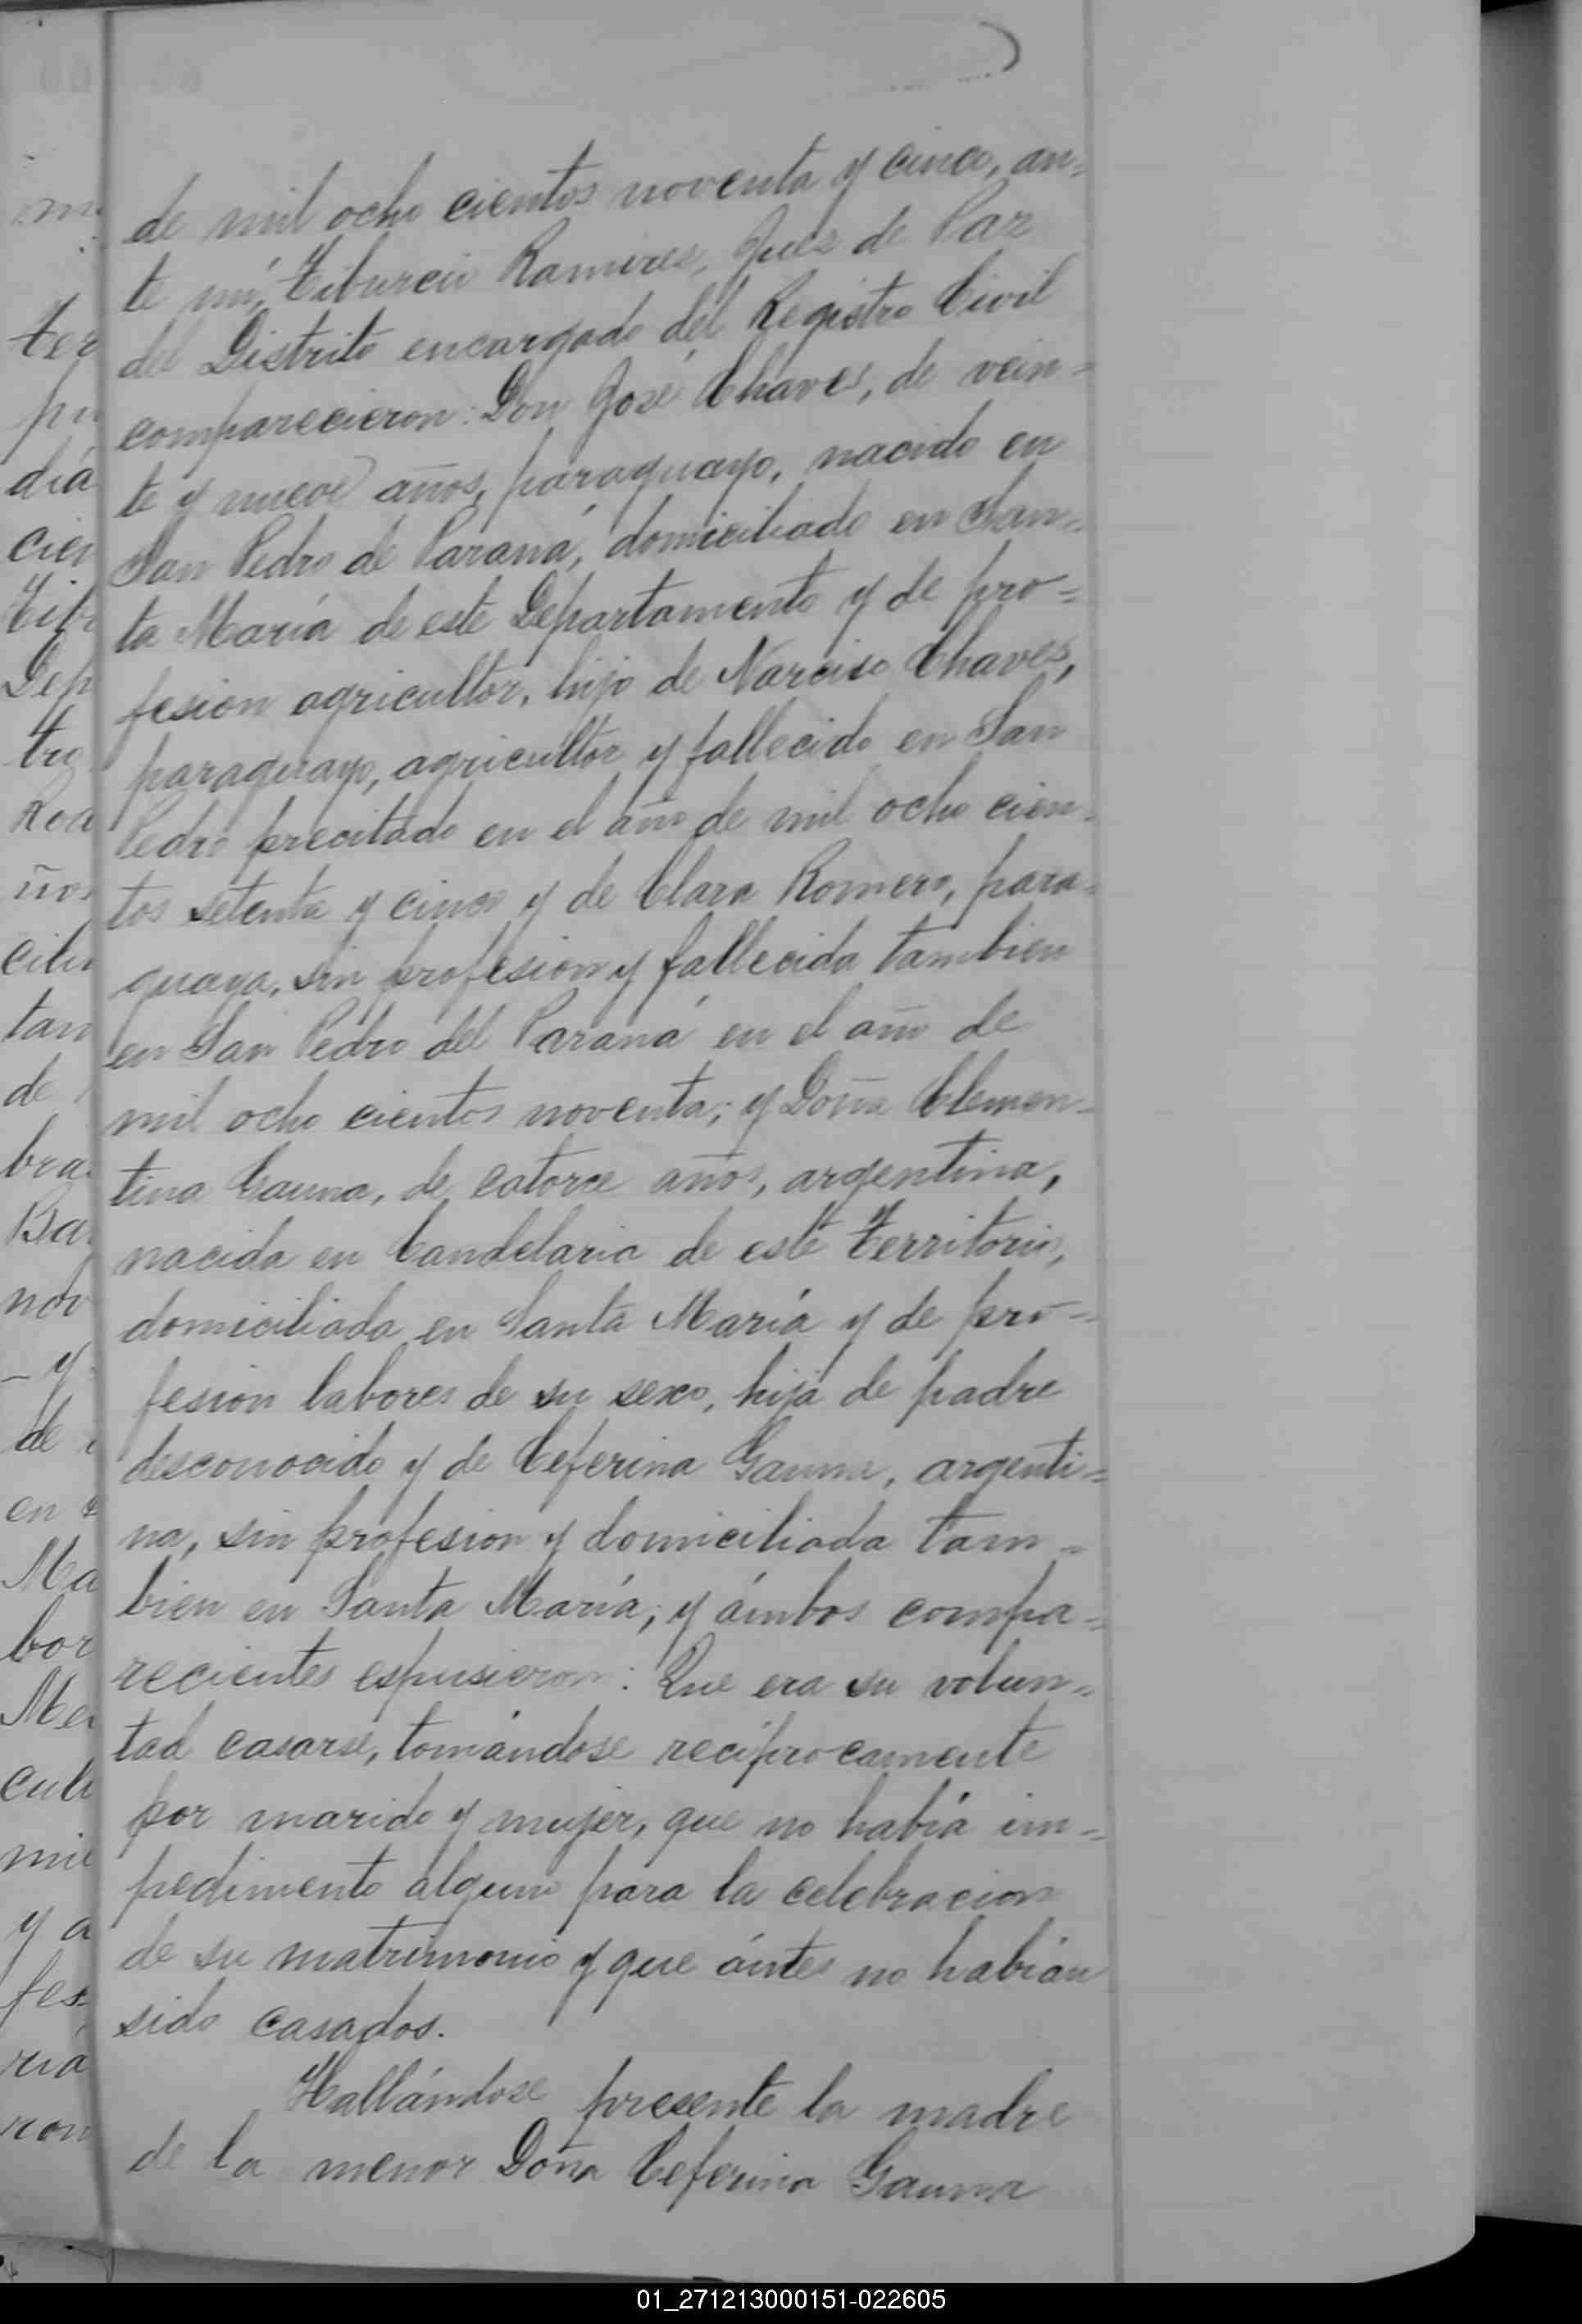 de mil ocho cientos noventa y cinco, an=
te mí, Tiburcio Ramires, Jues de Paz
del Distrito encargado del Registro Civil
comparecieron: Don José Chaves, de vein=
te y nueve años, paraguayo, nacido en
San Pedro de Paraná, domiciliado en San=
ta María de este Departamento y de pro=
fesion agricultor, hijo de Narciso Chaves,
paraguayo, agricultor y fallecido en San
Pedro precitado en el año de mil ocho cien=
tos setenta y cinco y de Clara Romero, para=
guaya, sin profesion y fallecida tambien
en San Pedro del Paraná en el año de
mil ocho cientos noventa; y Doña Clemen=
tina Gauna, de catorce años, argentina,
nacida en Candelaria de este Territorio,
domiciliada en Santa María y de pro=
fesion labores de su sexo, hija de padre
desconocido y de Ceferina Gauna, argenti=
na, sin profesion y domiciliada tam=
bien en Santa María; y ámbos compa=
recientes espusieron: Que era su volun=
tad casarse, tomándose recíprocamente
por marido y mujer, que no había im=
pedimento alguno para la celebracion
de su matrimonio y que ántes no habían
sido casados.
Hallándose presente la madre
de la menor Doña Ceferina Gauna
01_271213000151-022605